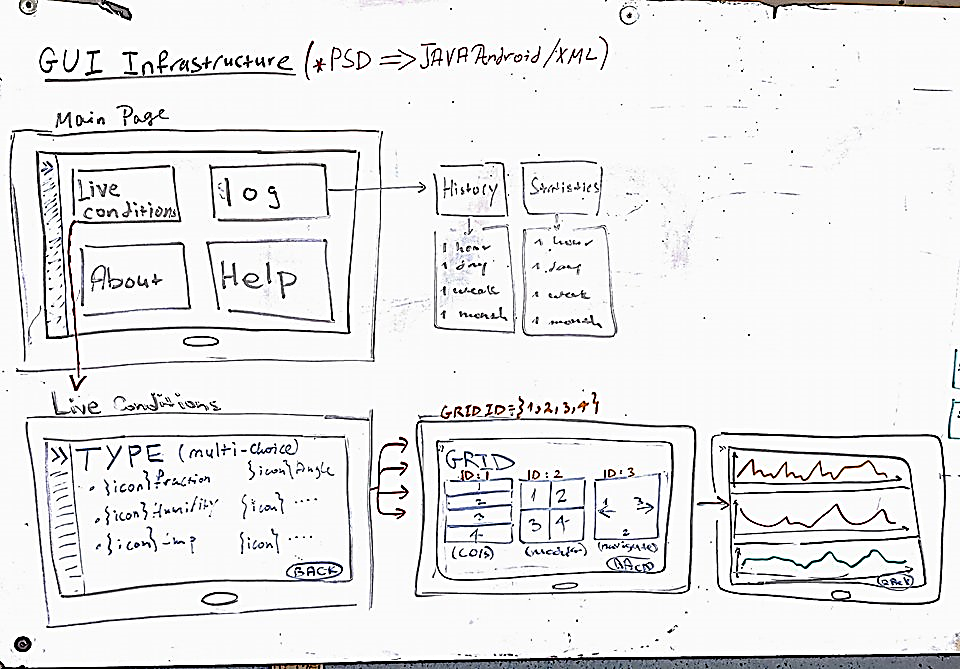 GUI Infrastructure (*PSD => JAVA Android/XML)
Main Page
>>
Live
conditions
log
About
Help
History
1 hour
1 day
1 weak
1 month
Statistics
1 hour
1 day
1 weak
1 month
Live Conditions
>> TYPE (multi-choice)
• {icon} fraction {icon} Angle
• {icon} Humidity {icon} ....
• {icon} {icon} ....
BACK
GRID ID={1,2,3,4}
GRID
ID:1
2
3
4
(COLS)
ID:2
1 2
3 4
ID:3
1 3
2
BACK
BACK